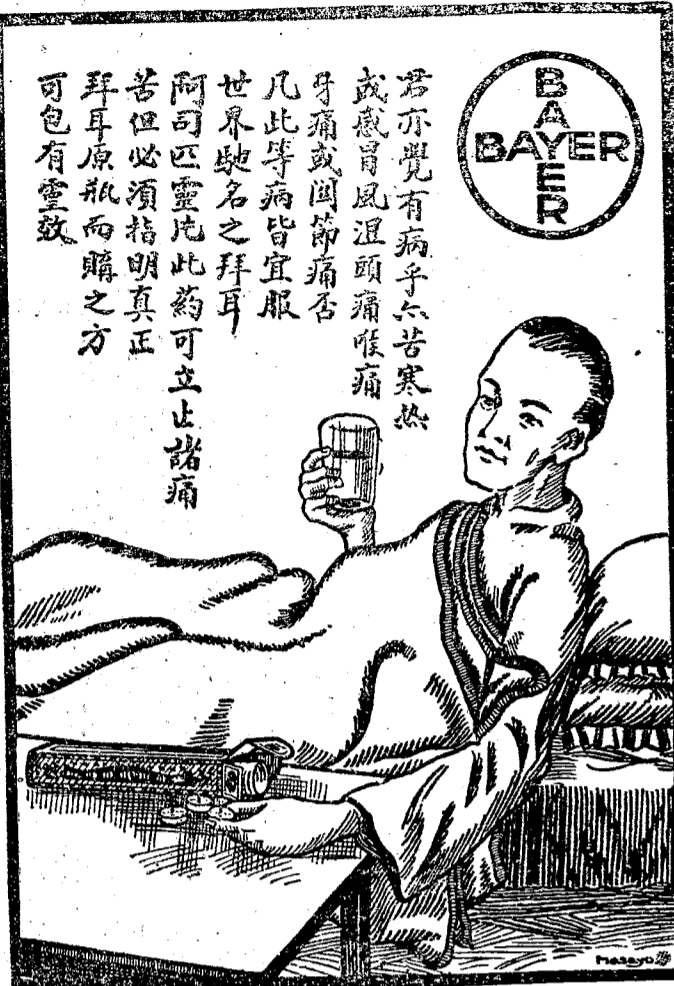 BAYER
BAYER
君亦覺有病乎亦苦寒热
或感冒風湿頭痛喉痛
牙痛或関節痛否
凡此等病皆宜服
世界馳名之拜耳
阿司匹靈片此药可立止諸痛
苦但必須指明真正
拜耳原瓶而購之方
可包有霊效
Masayo